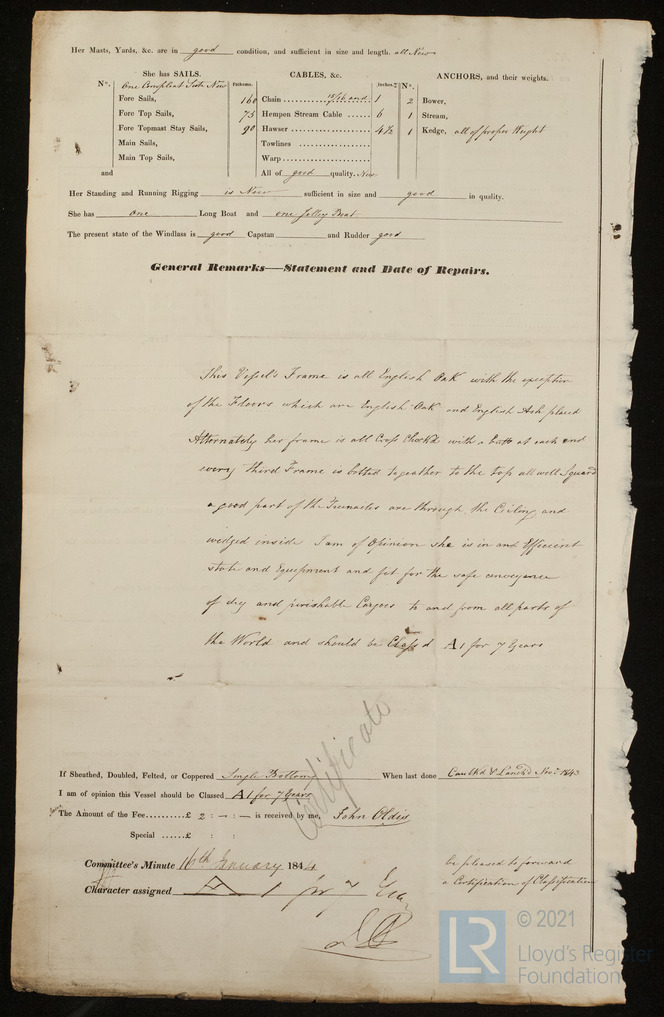 Her Masts, Yards, &c. are in good condition, and sufficient in size and length. all New
She has SAILS. CABLES, &c. ANCHORS, and their weights.
N°. One Compleat Sett New Fathoms. Inches. N°.
Fore Sails, 160 Chain 15/16 and 1 2 Bower,
Fore Top Sails, 75 Hempen Stream Cable 6 1 Stream,
Fore Topmast Stay Sails, 90 Hawser 4½ 1 Kedge, all of proper Weight
Main Sails, Towlines
Main Top Sails, Warp
and All of good quality. New
Her Standing and Running Rigging is New sufficient in size and good in quality.
She has one Long Boat and one Jolley Boat
The present state of the Windlass is good Capstan and Rudder good
General Remarks—Statement and Date of Repairs.
This Vessel's Frame is all English Oak with the exception
of the Floors which are English Oak and English Ash placed
Alternately her frame is all Cross Chockd with a butt at each end
every third Frame is botted togeather to the top all well Squard
a good part of the Treenailes are through the Ceiling and
wedged inside I am of Opinion she is in an Efficient
state and Equipment and fit for the safe conveyance
of dry and perishable Cargoes to and from all parts of
the World and should be Classd A1 for 7 Years
Certificate
If Sheathed, Doubled, Felted, or Coppered Single Bottom When last done Caulkd & Lanchd Novr 1843
I am of opinion this Vessel should be Classed A1 for 7 Years
The Amount of the Fee £ 2 : - : - is received by me, John Oldis
Special £ : :
Committee's Minute 16th January 1844
be pleased to forward
a Certification of Classification
Character assigned A 1 for 7 Yrs
LR © 2021
Lloyd's Register
Foundation